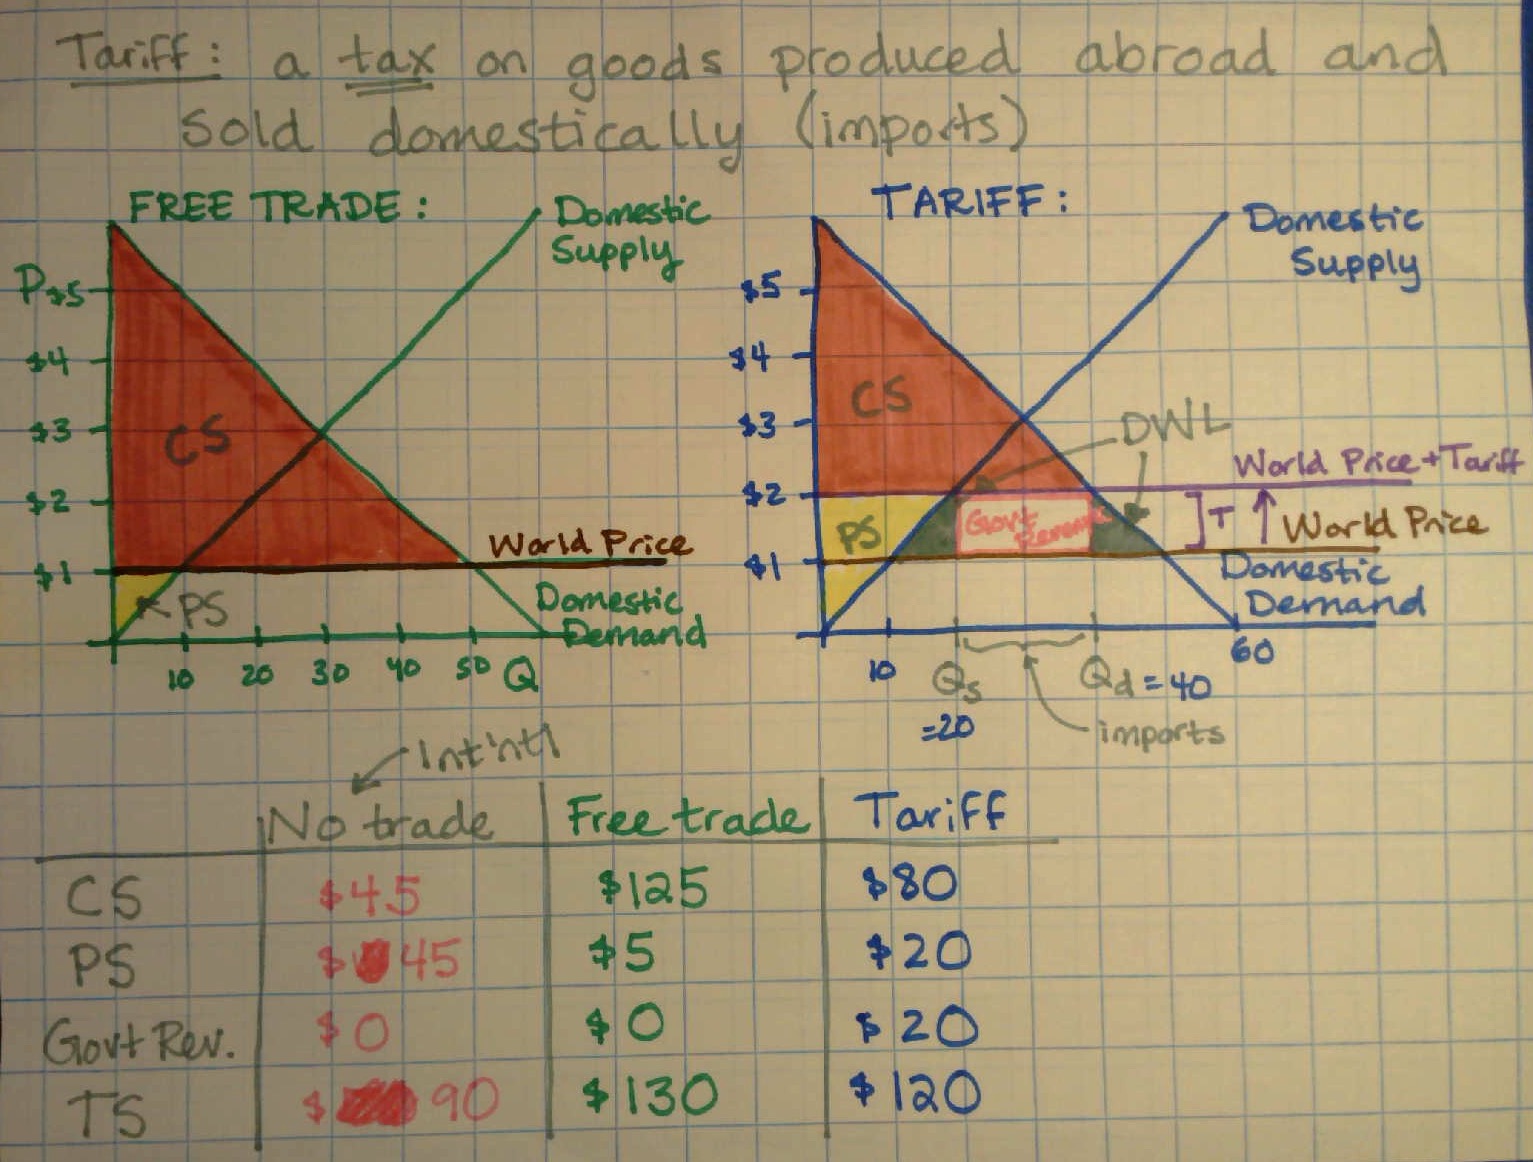 Tariff: a tax on goods produced abroad and
sold domestically (imports)
FREE TRADE:
Domestic
Supply
P
$5
$4
$3
$2
$1
CS
PS
World Price
Domestic
Demand
10 20 30 40 50 Q
TARIFF:
Domestic
Supply
$5
$4
$3
$2
$1
CS
DWL
World Price + Tariff
PS
Gov't
Revenue
T
World Price
Domestic
Demand
10
Qs
=20
Qd = 40
60
imports
Int'ntl
No trade Free trade Tariff
CS $45 $125 $80
PS $45 $5 $20
Govt Rev. $0 $0 $20
TS $90 $130 $120